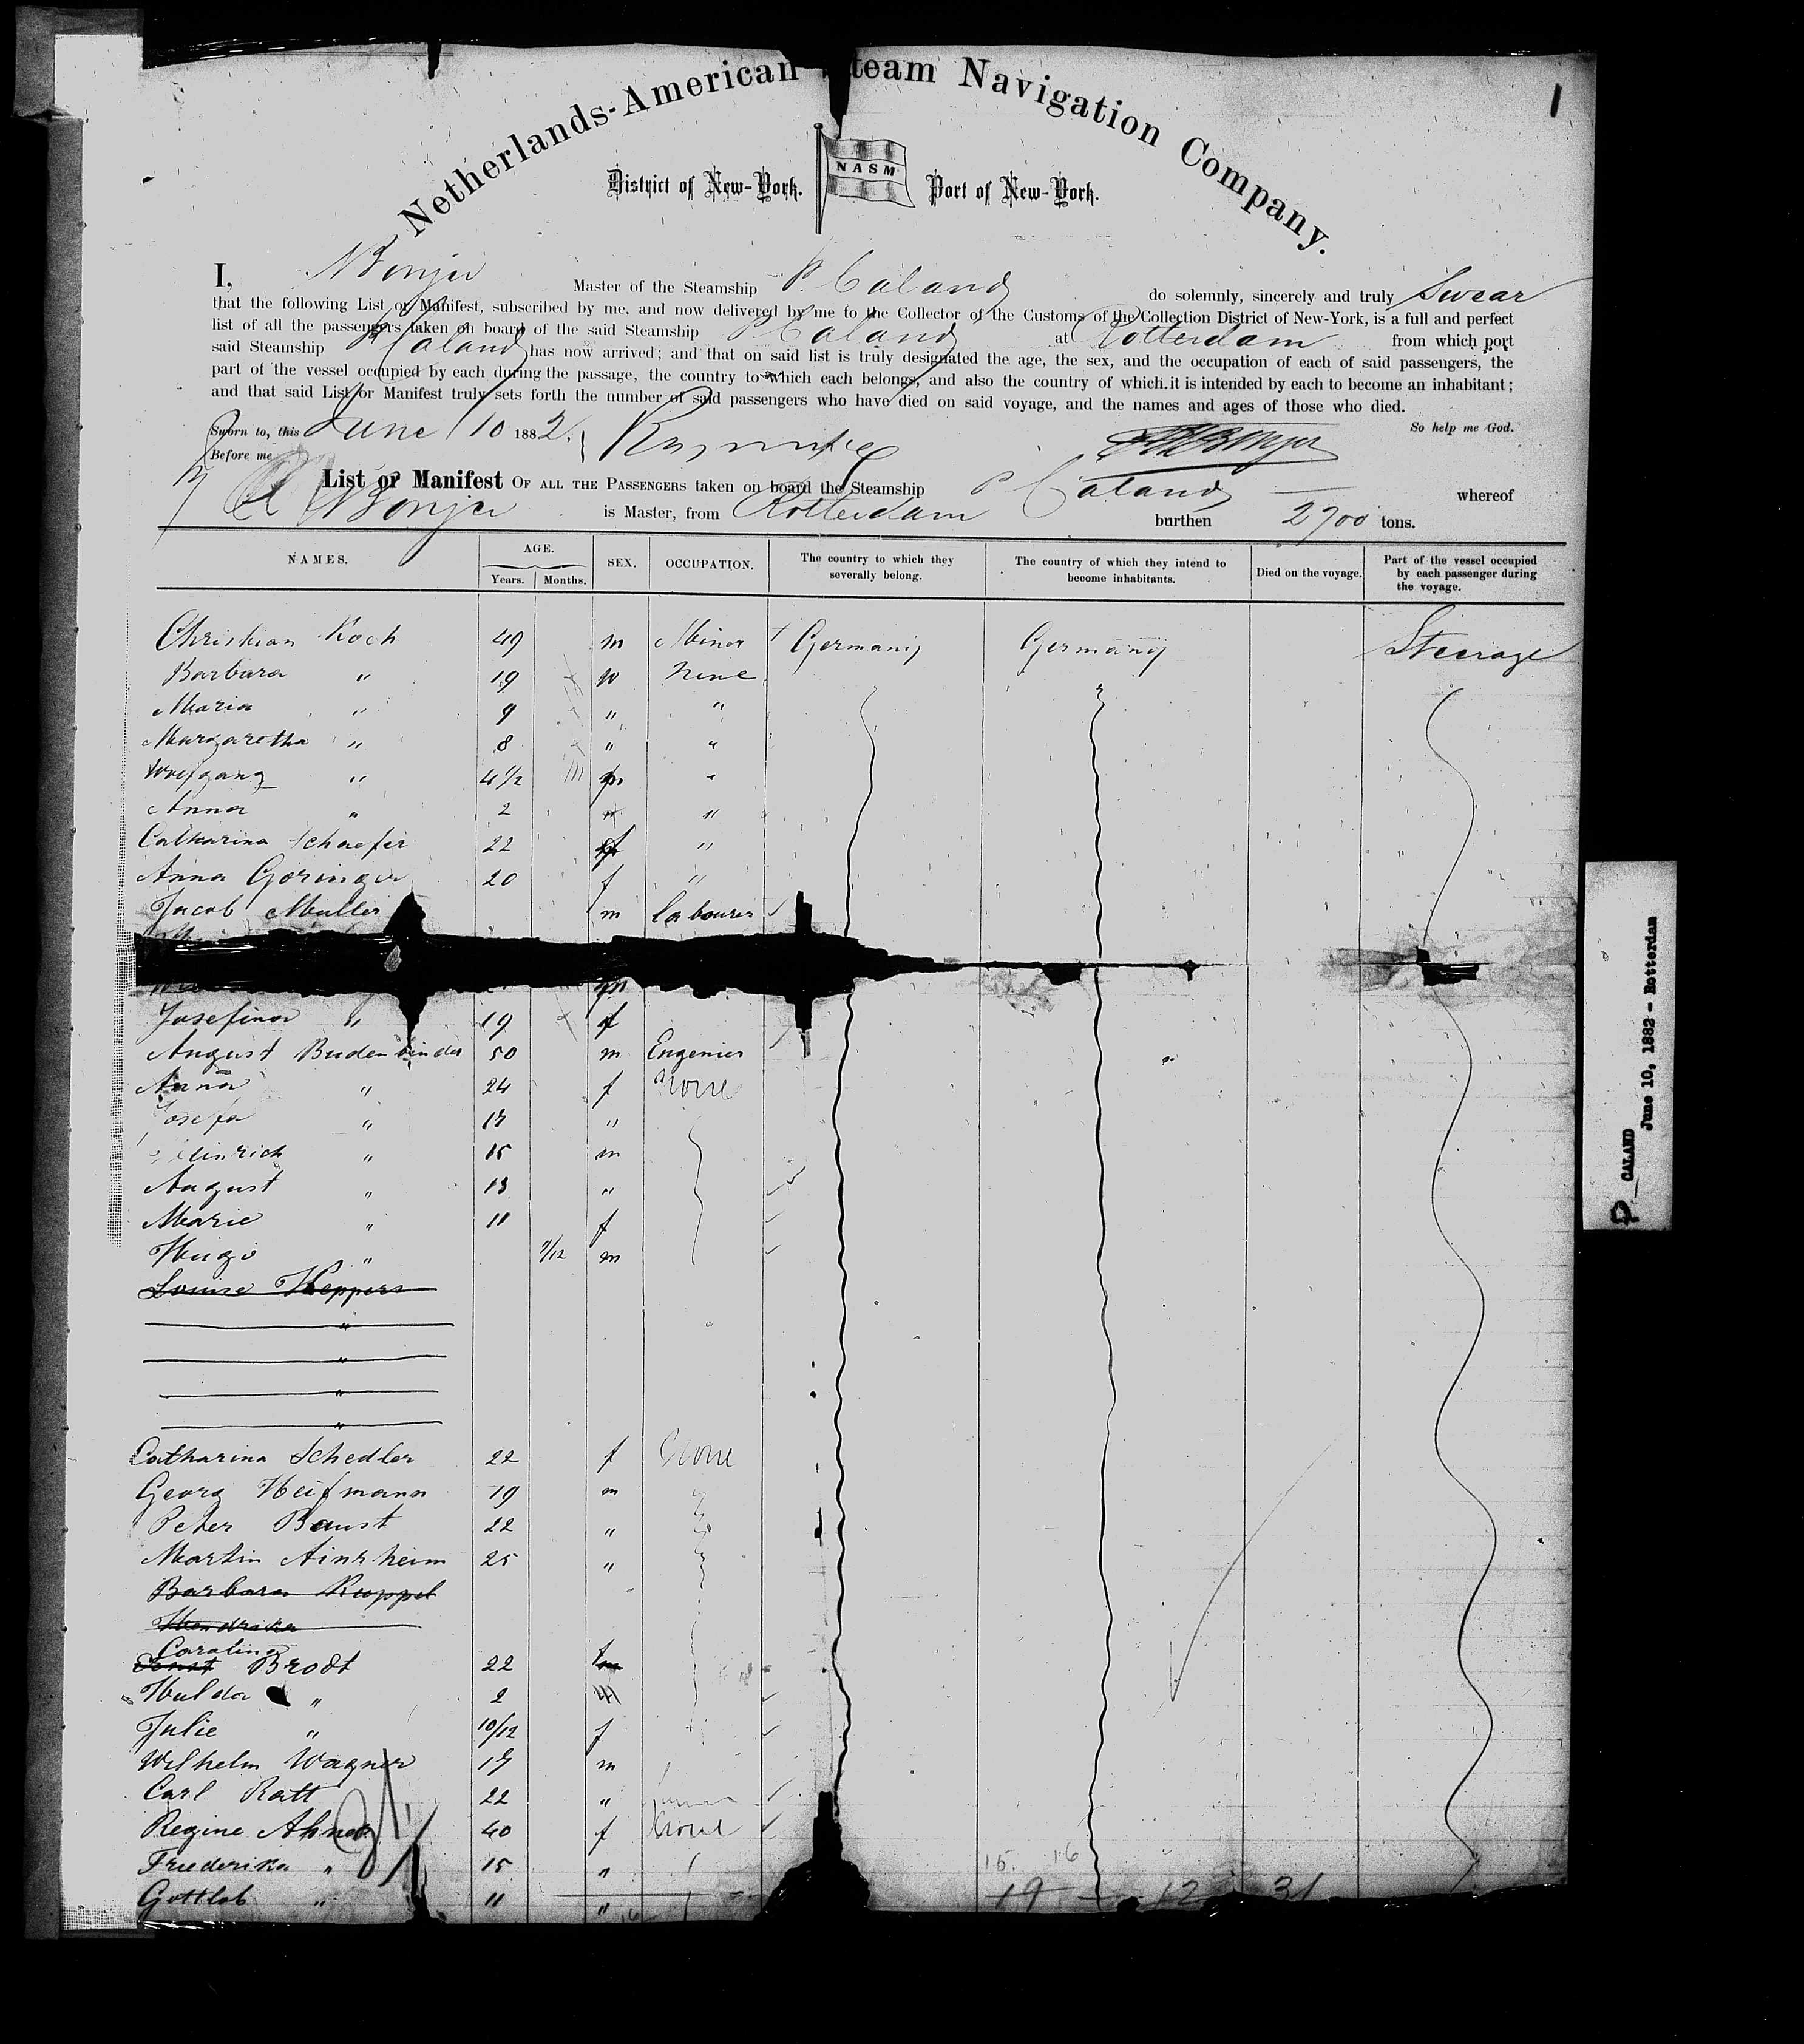 1
Netherlands-American Steam Navigation Company.
District of New-York. NASM Port of New-York.
I, Bonjer Master of the Steamship P. Caland do solemnly, sincerely and truly Swear
that the following List or Manifest, subscribed by me, and now delivered by me to the Collector of the Customs of the Collection District of New-York, is a full and perfect
list of all the passengers taken on board of the said Steamship P. Caland at Rotterdam from which port
said Steamship P Caland has now arrived; and that on said list is truly designated the age, the sex, and the occupation of each of said passengers, the
part of the vessel occupied by each during the passage, the country to which each belongs, and also the country of which it is intended by each to become an inhabitant;
and that said List or Manifest truly sets forth the number of said passengers who have died on said voyage, and the names and ages of those who died.
Sworn to, this June 10 1882. So help me God.
Before me Bonjer
List or Manifest OF ALL THE PASSENGERS taken on board the Steamship P Caland whereof
Bonjer is Master, from Rotterdam burthen 2700 tons.
NAMES. AGE. Years. Months. SEX. OCCUPATION. The country to which they severally belong. The country of which they intend to become inhabitants. Died on the voyage. Part of the vessel occupied by each passenger during the voyage.
Christian Koch 49 m Miner Germany Germany Steerage
Barbara " 19 None
Maria " 9 " "
Margaretha " 8 " "
Wolfgang " 4 1/2 m "
Anna " 2 "
Catharina Schaefer 22 f "
Anna Goringer 20 f "
Jacob Muller m labourer
m
Josefina " 19 f
August Budenbinder 50 m Engenier
Anna " 24 f None
Josefa " 17 "
Heinrich " 15 m
August " 13 "
Marie " 11 f
Hugo " m
Louise Heppers
"
"
"
"
Catharina Schedler 22 f None
Georg Heifmann 19 m
Peter Baust 22 "
Martin Ainrheim 25 "
Barbara Ruppel
Hendrika
Carolina
Ernst Brodt 22
Hulda " 2
Julie " 10/12 f
Wilhelm Wagner 17 m
Carl Ratt 22 "
Regine 40 f None
Friederika " 15 "
Gottlob " 11 "
15. 16
19 12 31
P CALAND
June 10, 1882 - Rotterdam